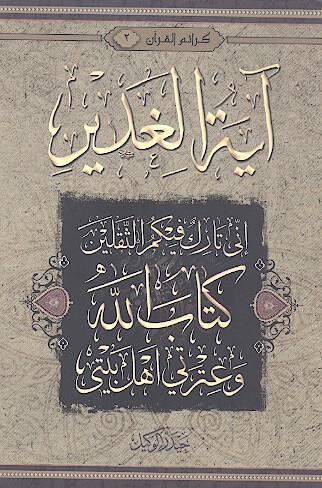 كرائم القرآن ٢
آية الغدير
إني تارك فيكم الثقلين
كتاب الله
وعترتي أهل بيتي
حيدر الوكيل